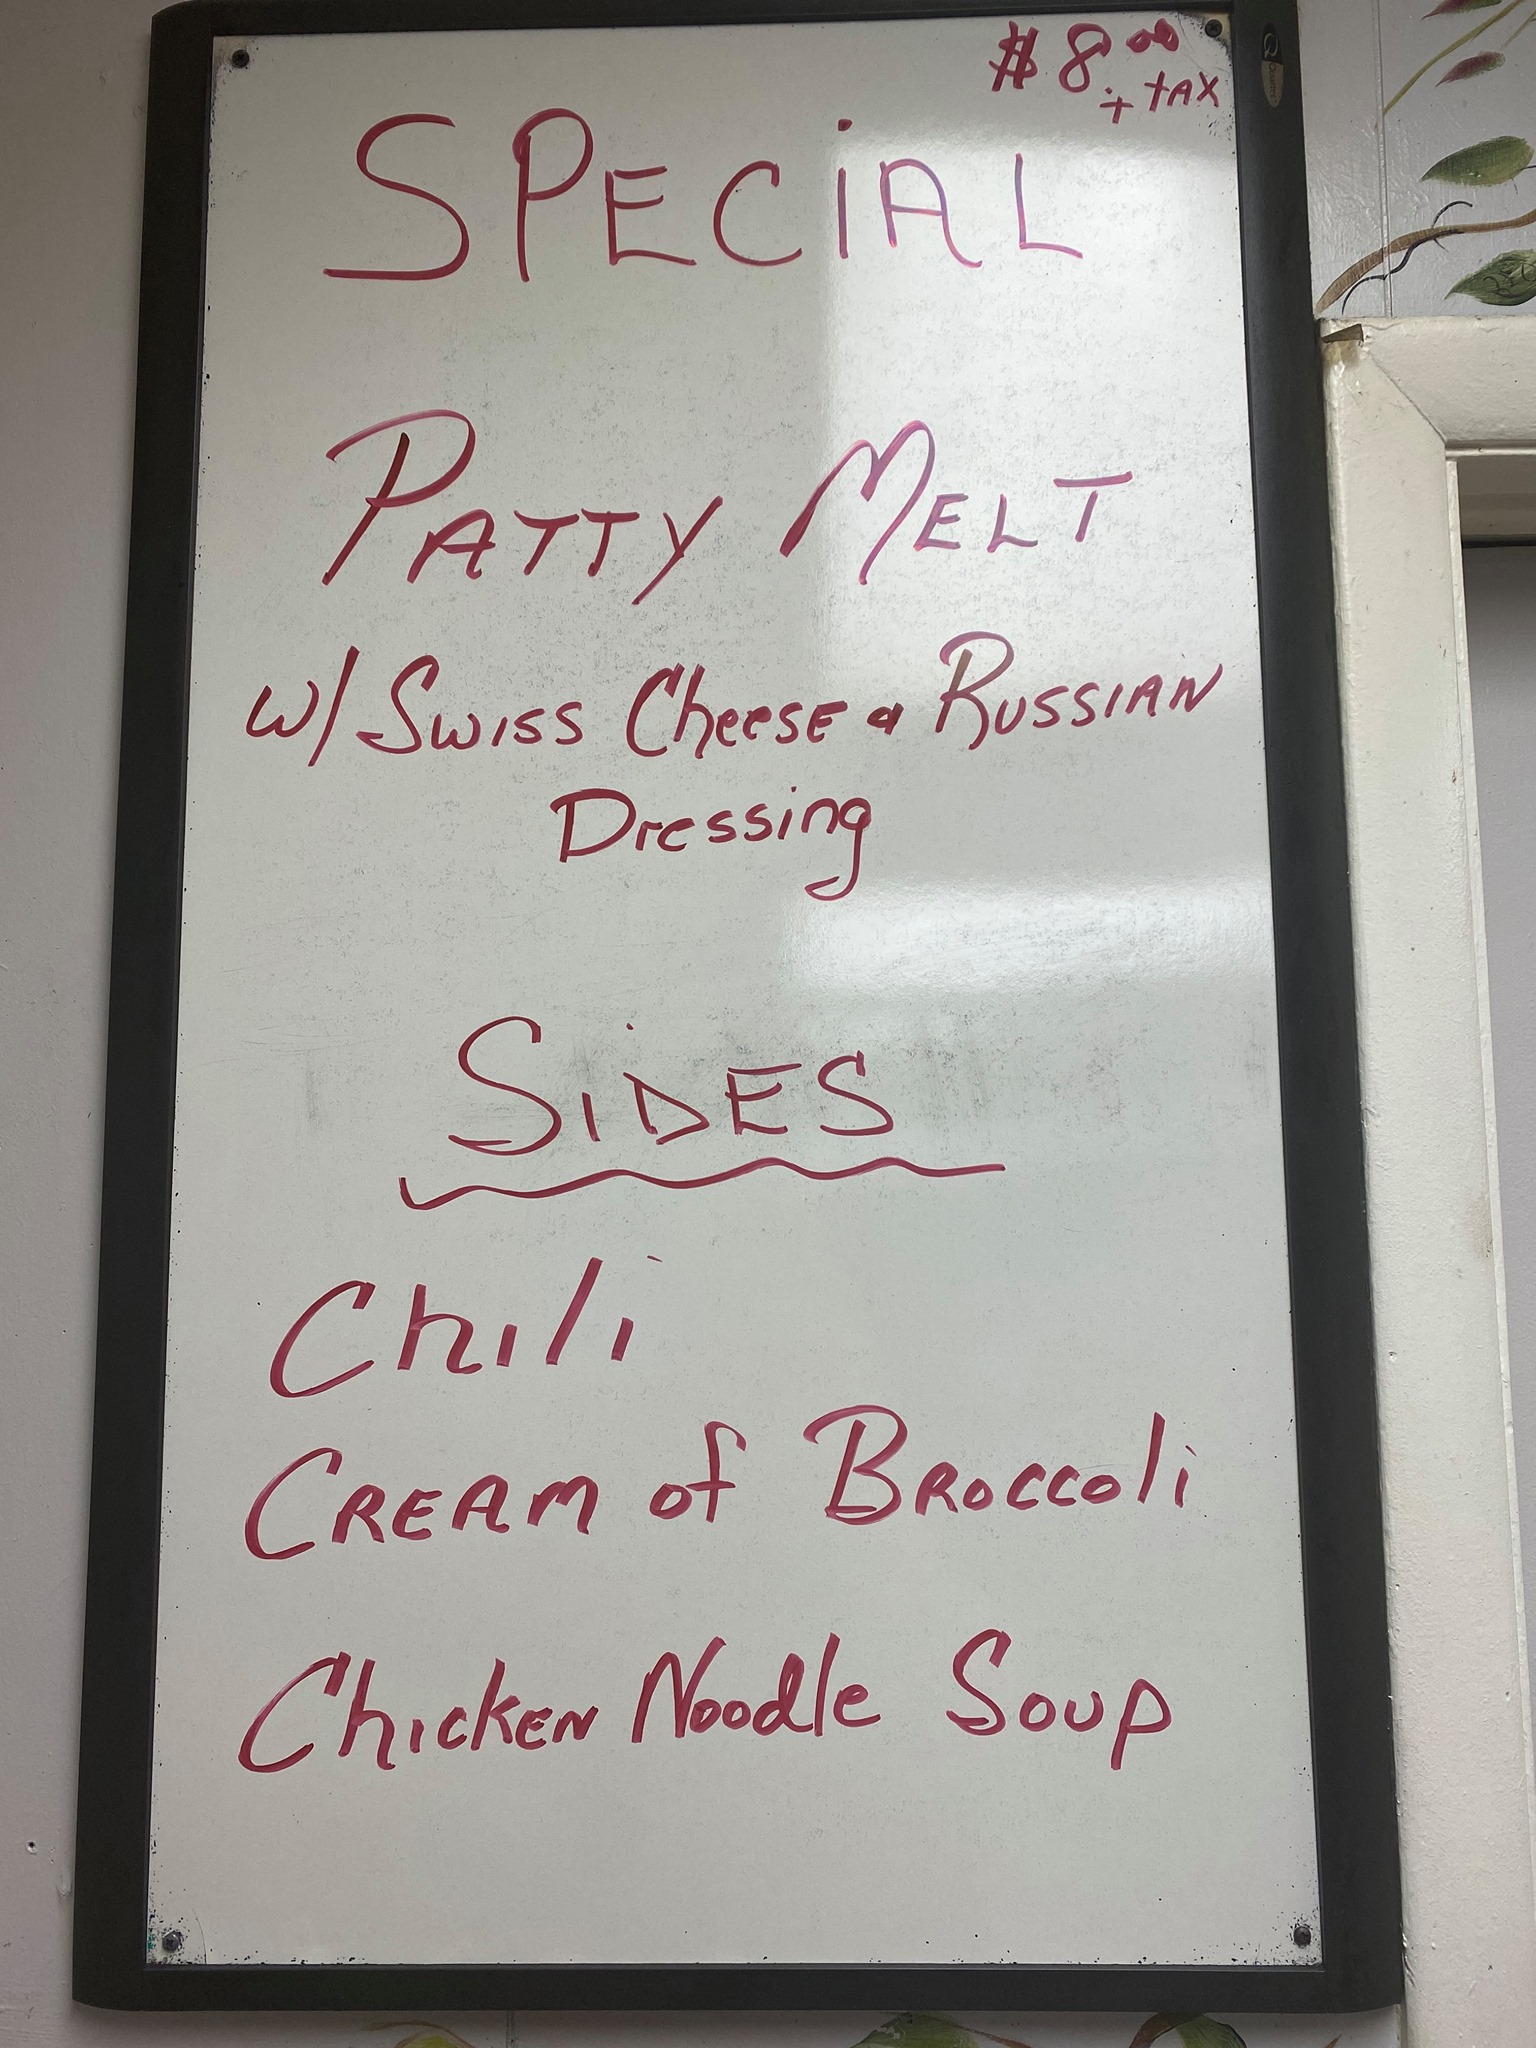 $8.00
+ TAX
SPECiAL
PATTY MELT
w/ SWISS CHeeSE & RUSSIAN
Dressing
SiDES
Chili
CREAM of BROCCOli
ChickEN Noodle Soup
Quartet